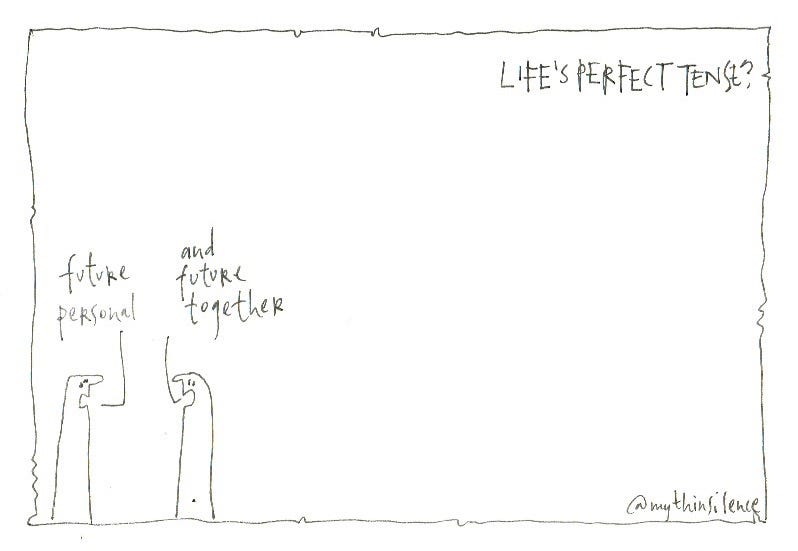 LIFE'S PERFECT TENSE?
future
personal
and
future
together
@mythinsilence